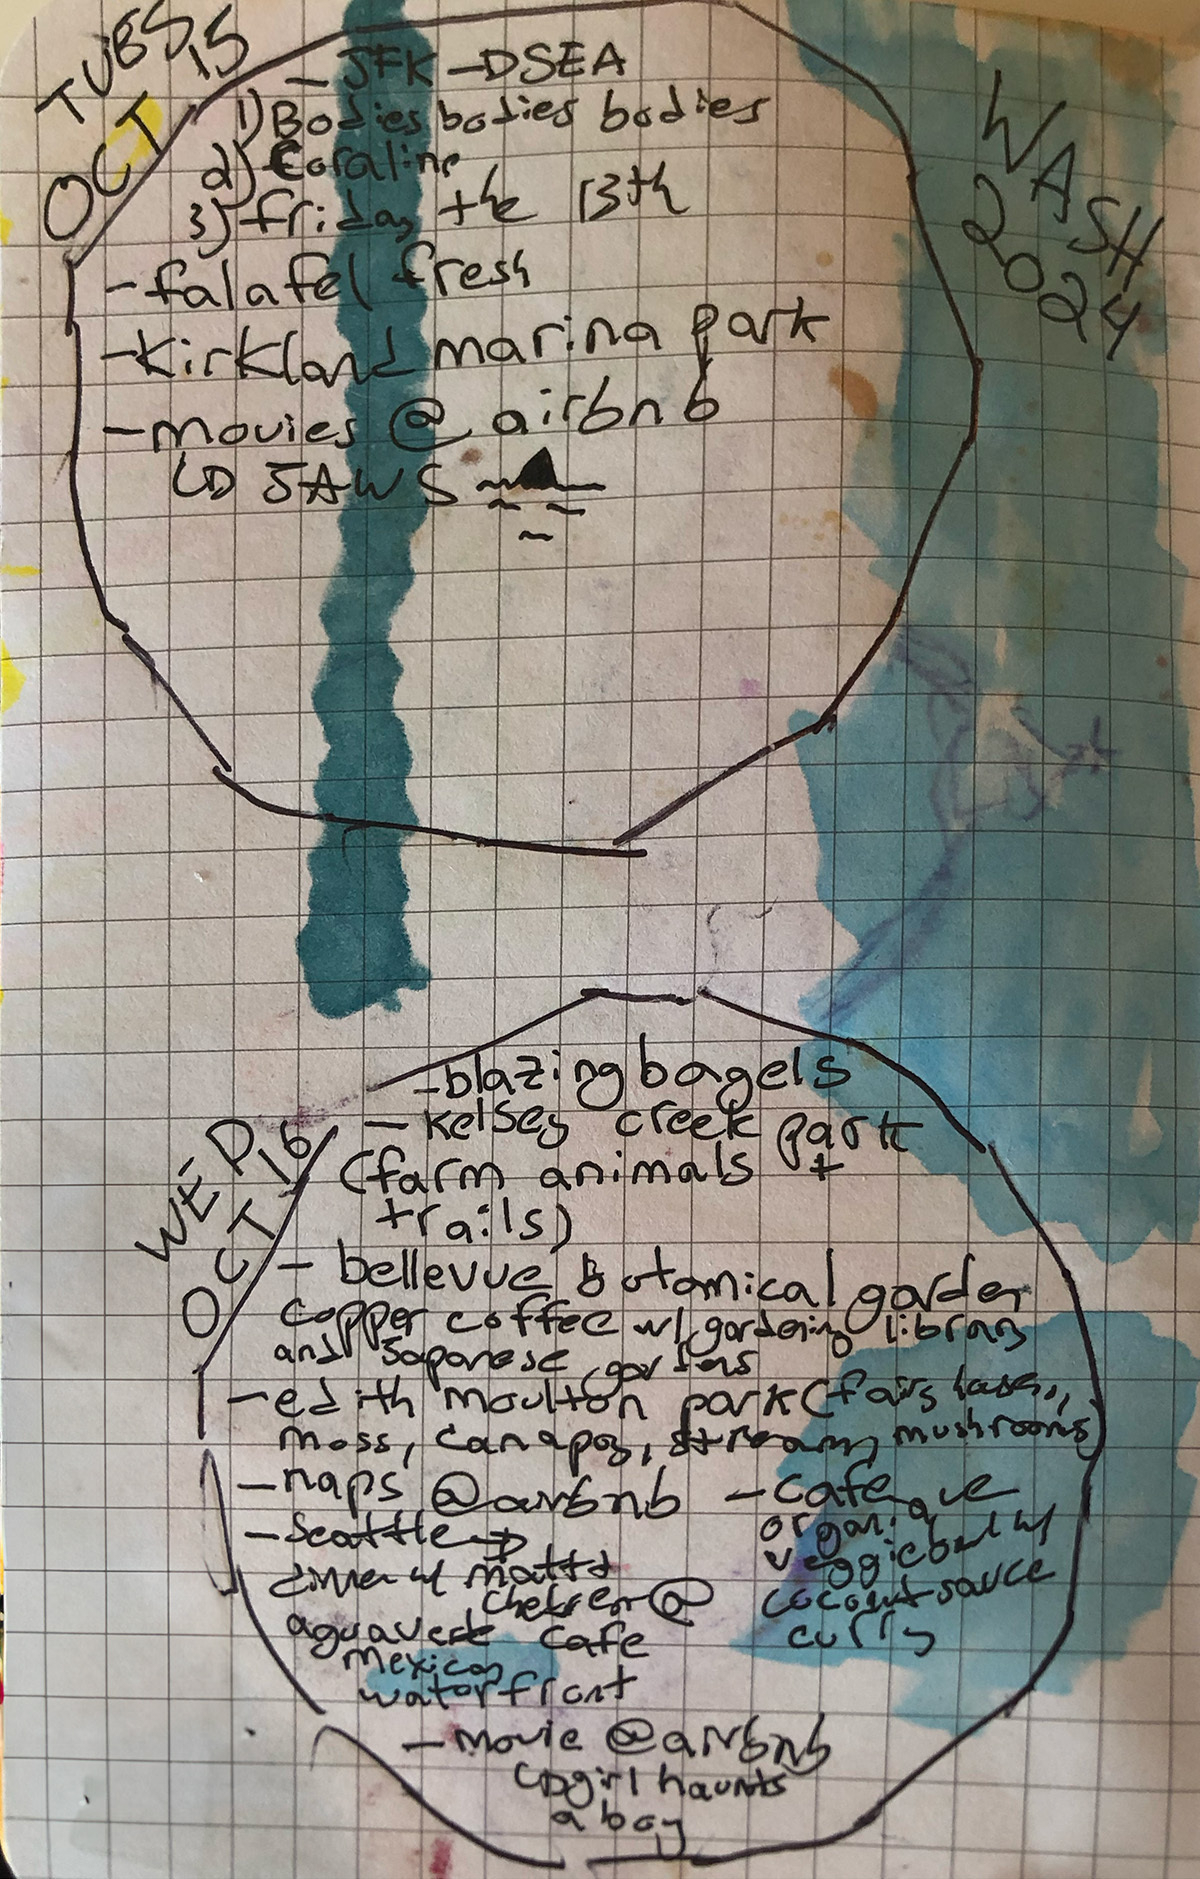 TUES
OCT 15
WASH
2024
- JFK → SEA
1) Bodies bodies bodies
2) Coraline
3) friday the 13th
- falafel fresh
- kirkland marina park
- movies @ airbnb
JAWS
WED
OCT 16
- blazing bagels
- kelsey creek park
(farm animals +
trails)
- bellevue botanical garden
copper coffee w/ gardening library
and Japanese gardens
- edith moulton park (fairy
moss, canapoy, stream, mushrooms)
- naps @ airbnb
- Seattle →
dinner w/ matt +
@
aguaverde cafe
mexican
waterfront
- cafe
organique
veggie bowl w/
coconut sauce
curry
- movie @ airbnb
girl haunts
a boy